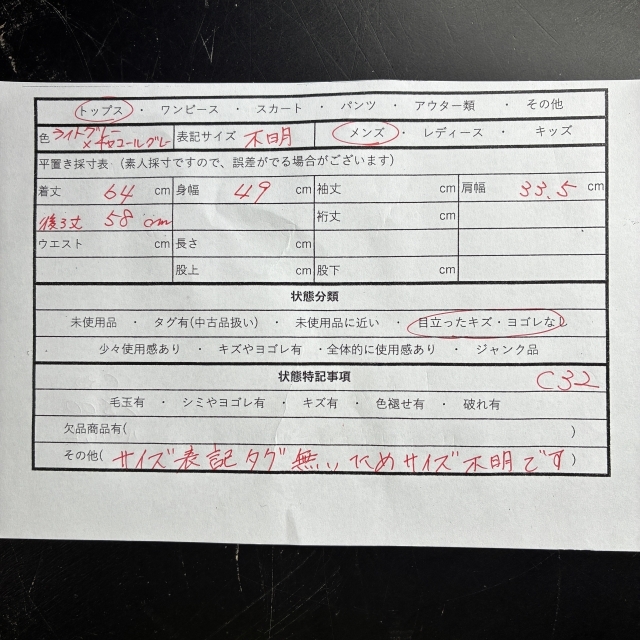 トップス ・ ワンピース ・ スカート ・ パンツ ・ アウター類 ・ その他
色 ライトグレー×チャコールグレー 表記サイズ 不明 メンズ ・ レディース ・ キッズ
平置き採寸表（素人採寸ですので、誤差がでる場合がございます）
着丈 64 cm 身幅 49 cm 袖丈 cm 肩幅 33.5 cm
後ろ丈 58 cm cm 裄丈 cm
ウエスト cm 長さ cm cm
股上 cm 股下 cm
状態分類
未使用品 ・ タグ有(中古品扱い) ・ 未使用品に近い ・ 目立ったキズ・ヨゴレなし
少々使用感あり ・ キズやヨゴレ有 ・全体的に使用感あり ・ ジャンク品
状態特記事項 C32
毛玉有 ・ シミやヨゴレ有 ・ キズ有 ・ 色褪せ有 ・ 破れ有
欠品商品有( )
その他( サイズ表記タグ無いためサイズ不明です )